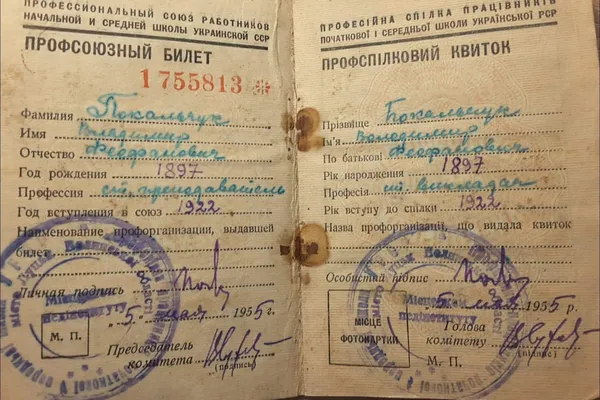 ПРОФЕССИОНАЛЬНЫЙ СОЮЗ РАБОТНИКОВ
НАЧАЛЬНОЙ И СРЕДНЕЙ ШКОЛЫ УКРАИНСКОЙ ССР
ПРОФСОЮЗНЫЙ БИЛЕТ
1755813 *
Фамилия Покальчук
Имя Владимир
Отчество Феофанович
Год рождения 1897
Профессия ст. преподаватель
Год вступления в союз 1922
Наименование профорганизации, выдавшей
билет
Личная подпись
"5" мая 1955 г.
М. П.
Председатель
комитета
(подпись)
Місцевком
педінституту
ПРОФЕСІЙНА СПІЛКА ПРАЦІВНИКІВ
ПОЧАТКОВОЇ І СЕРЕДНЬОЇ ШКОЛИ УКРАЇНСЬКОЇ РСР
ПРОФСПІЛКОВИЙ КВИТОК
Прізвище Покальчук
Ім'я Володимир
По батькові Феофанович
Рік народження 1897
Професія ст. викладач
Рік вступу до спілки 1922
Назва профорганізації, що видала квиток
Особистий підпис
5 мая 1955 р.
МІСЦЕ
ФОТОКАРТКИ
Голова
комітету
(підпис)
Місцевком
педінституту